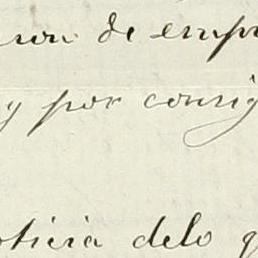 de empr
y por consig
oticia delo q